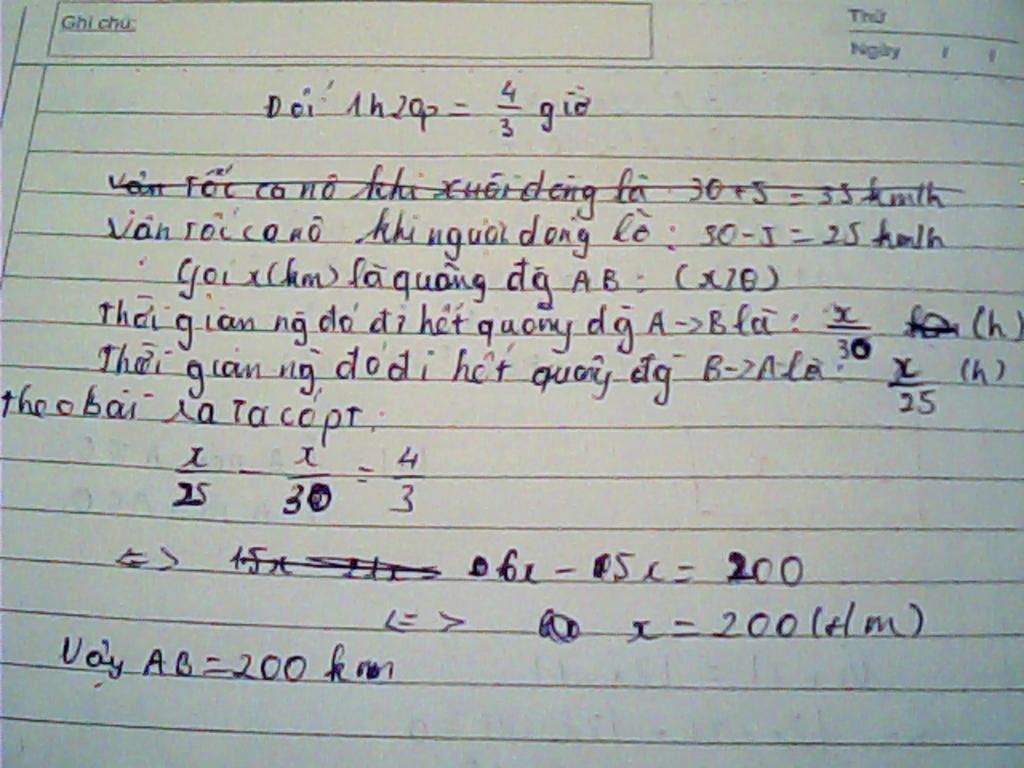 Ghi chú:
Thứ
Ngày / /
Đổi 1h20p = 4/3 giờ
Vận tốc ca nô khi xuôi dòng là 30+5 = 35 km/h
Vận tốc ca nô khi ngược dòng là: 30-5 = 25 km/h
Gọi x(km) là quãng đg AB: (x>0)
Thời gian ng đó đi hết quãng đg A->B là: x/30 (h)
Thời gian ng đó đi hết quãng đg B->A là: x/25 (h)
theo bài ra ta có pt:
x/25 - x/30 = 4/3
<=> 6x - 5x = 200
<=> x = 200 (t/m)
Vậy AB = 200 km